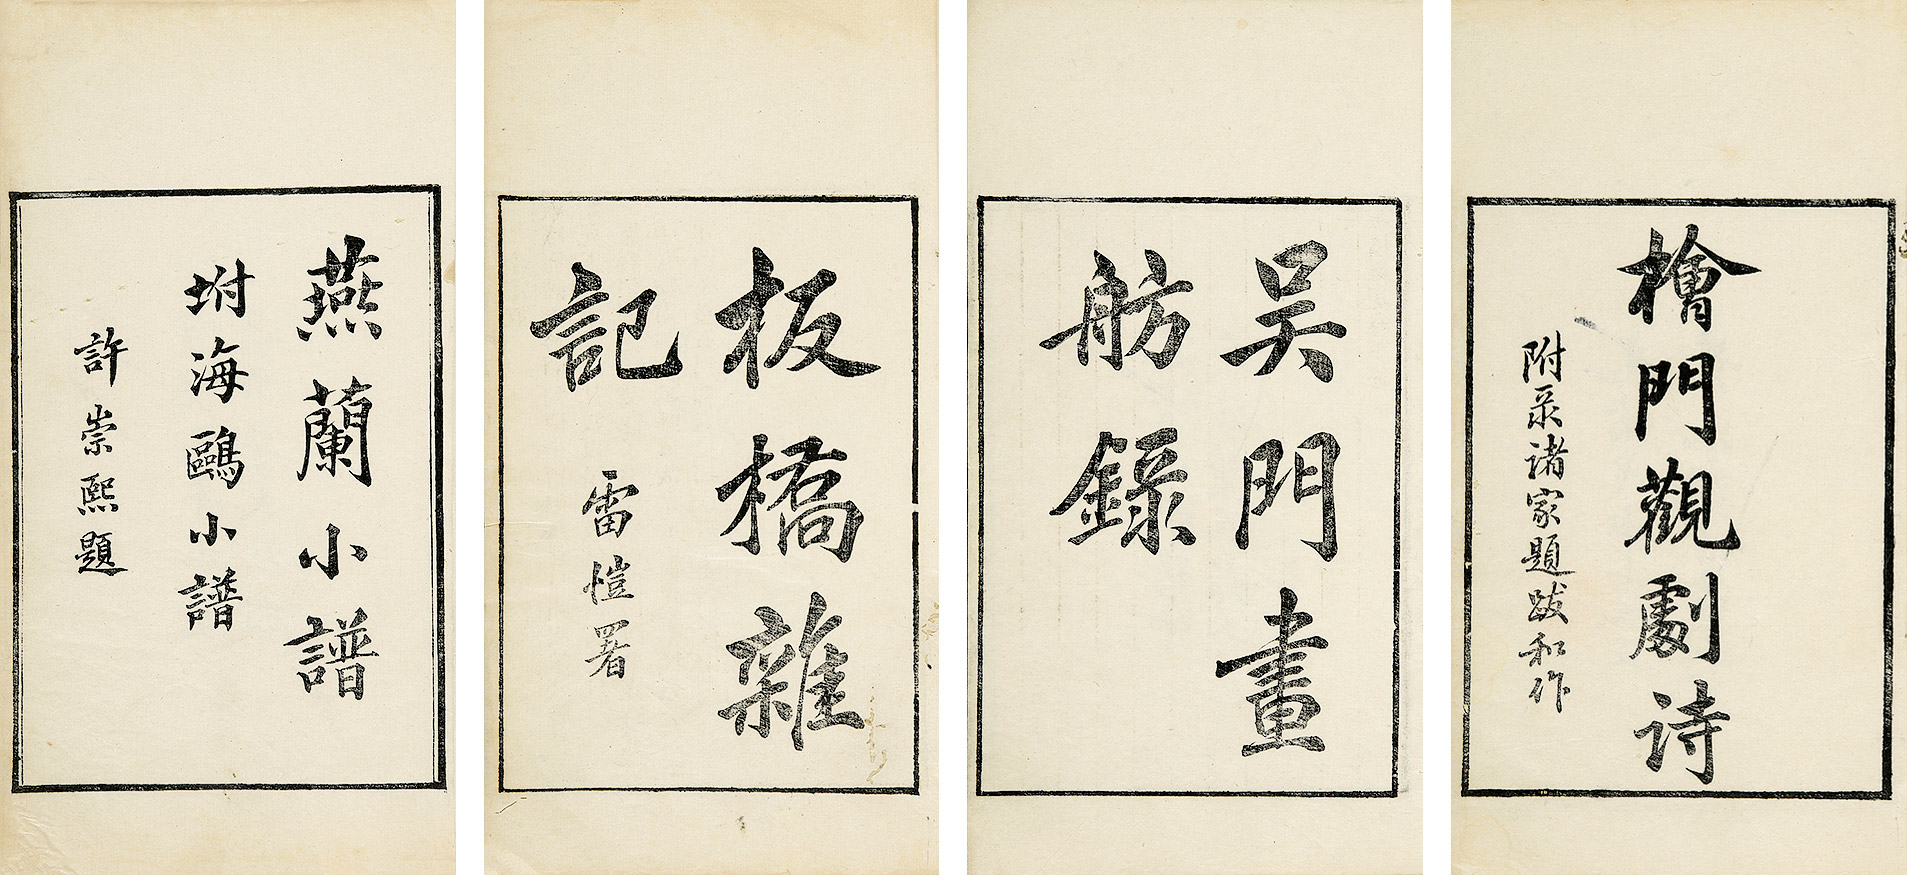 燕蘭小譜
坿海鷗小譜
許崇熙題
板橋雜
記
雷愷署
吴門畫
舫錄
檜門觀劇詩
附彔諸家題跋和作